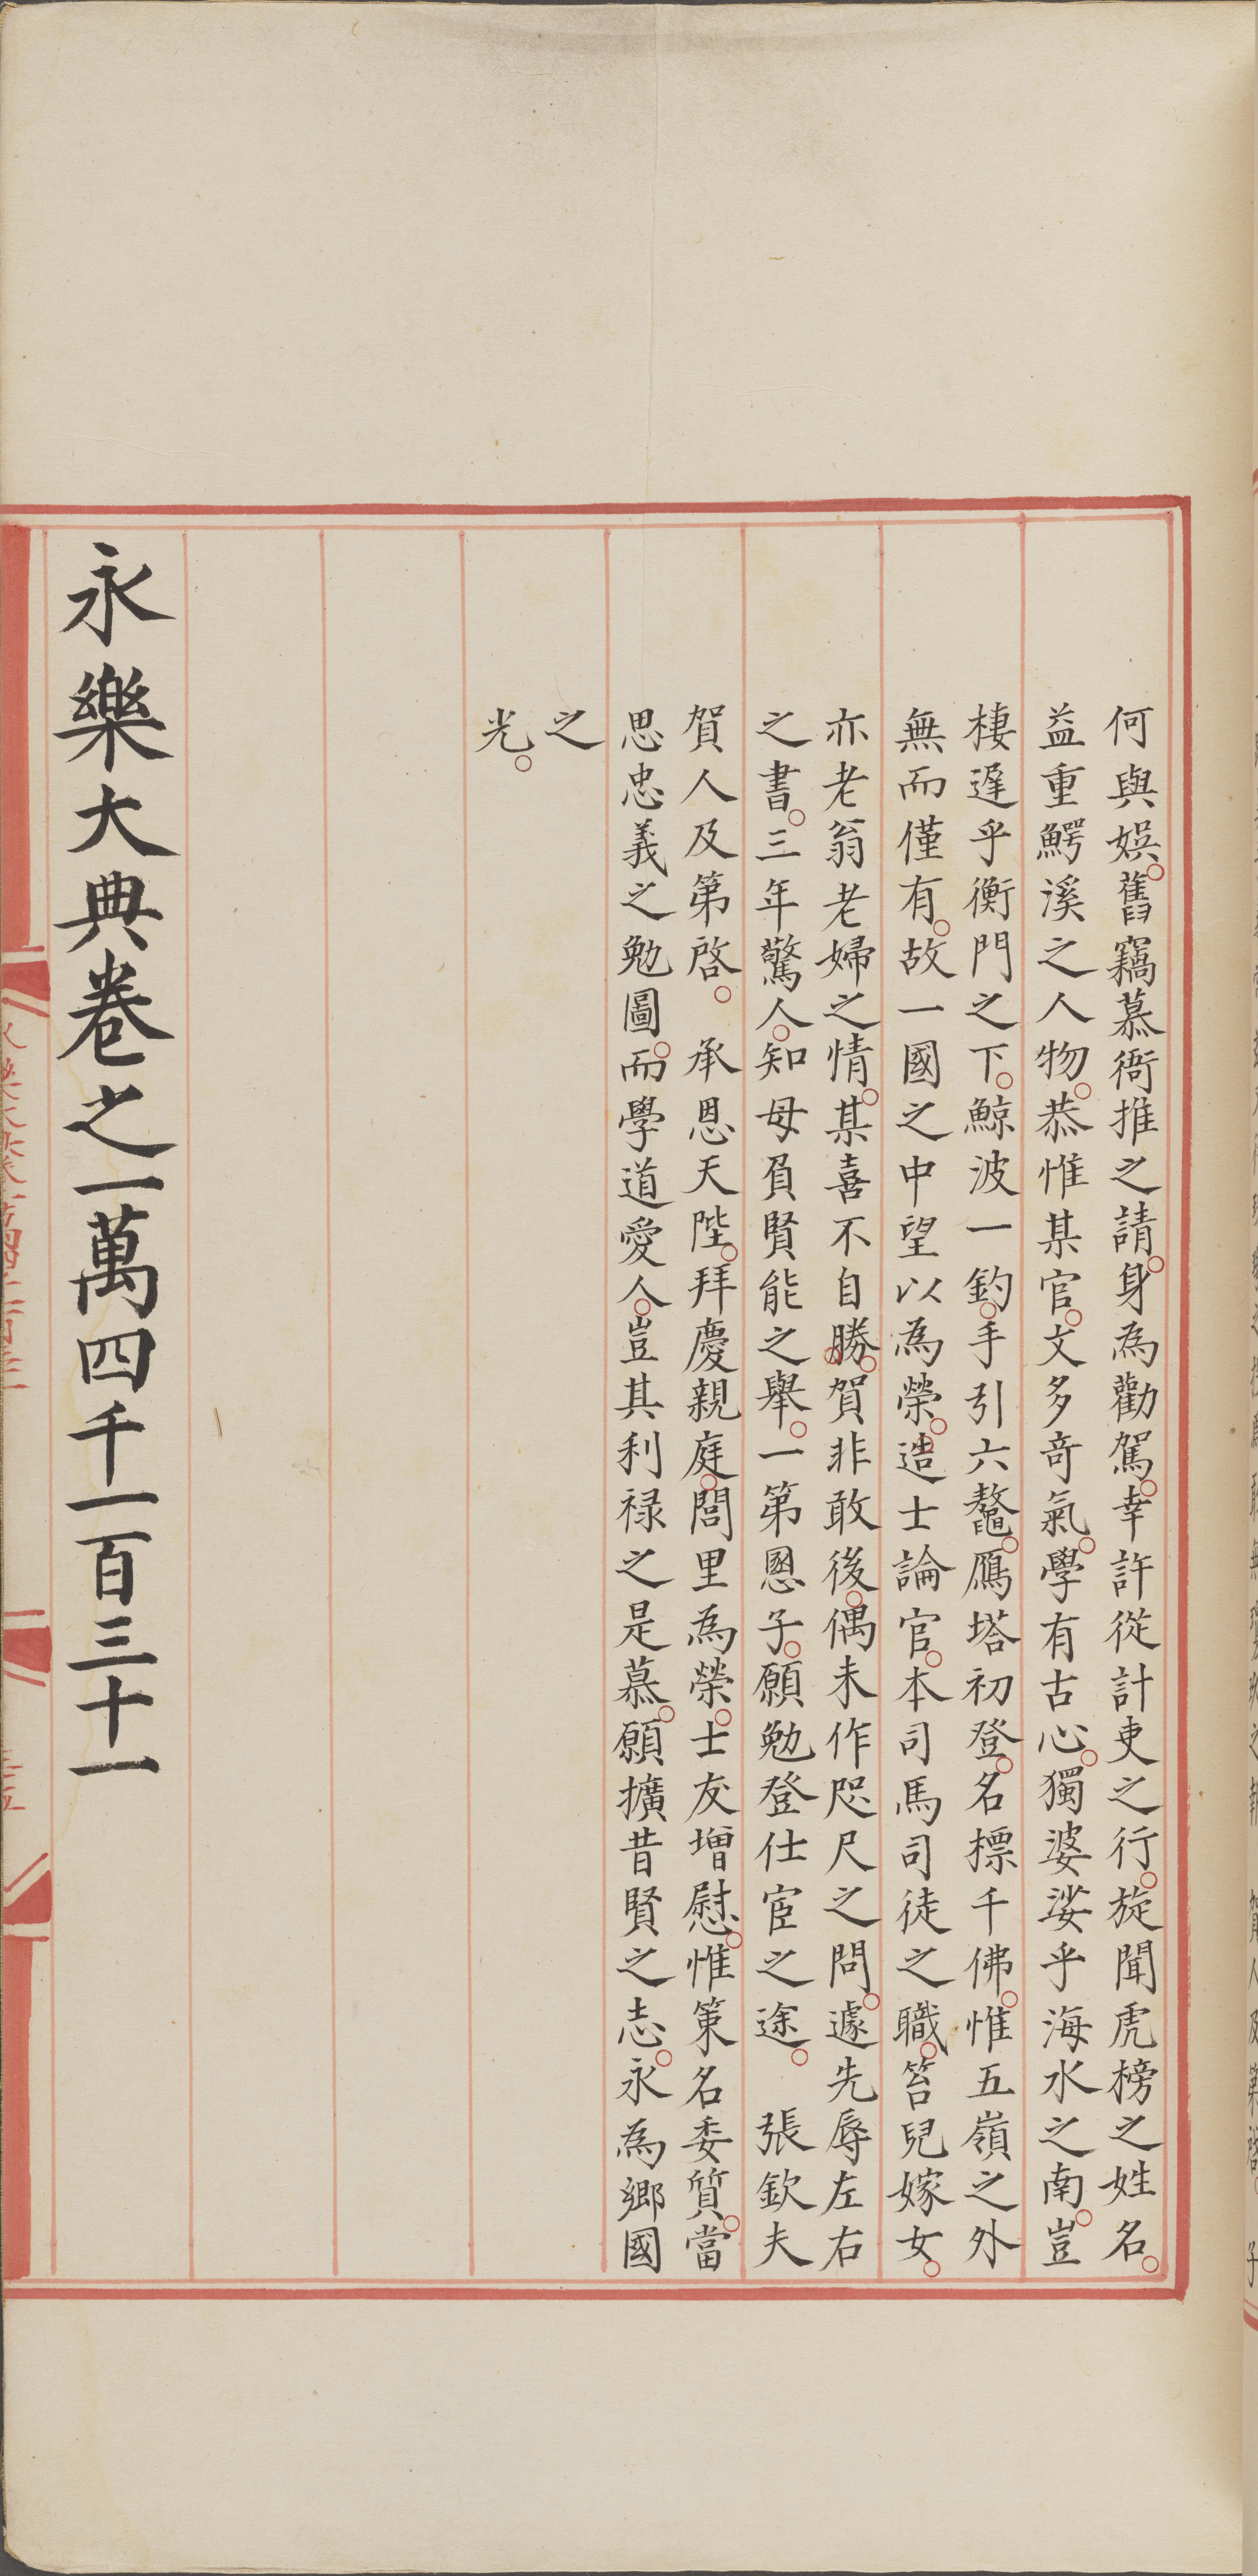 何與娯。舊竊慕衙推之請。身為勸駕。幸許從計吏之行。旋聞虎榜之姓名。
益重鰐溪之人物。恭惟某官。文多竒氣。學有古心。獨婆娑乎海水之南。豈
棲遅乎衡門之下。鯨波一釣。手引六鼇。鴈塔初登。名標千佛。惟五嶺之外
無而僅有。故一國之中望以為榮。造士論官。本司馬司徒之職。笞兒嫁女。
亦老翁老婦之情。某喜不自勝。賀非敢後。偶未作咫尺之問。遽先辱左右
之書。三年驚人。知母負賢能之舉。一第恩子。願勉登仕宦之途。　張欽夫
賀人及第啓。　承恩天陛。拜慶親庭。閭里為榮。士友增慰。惟策名委質。當
思忠義之勉圖。而學道愛人。豈其利禄之是慕。願擴昔賢之志。永為鄉國
之
光。
永樂大典卷之一萬四千一百三十一